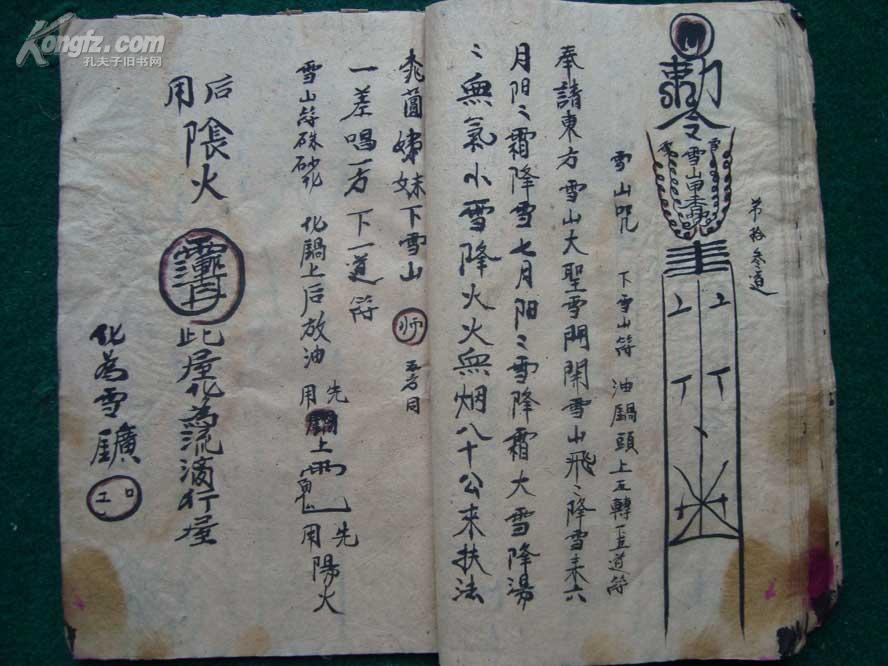 Kongfz.com
孔夫子旧书网
第拾叁道
勅令
雪山
雪山咒 下雪山符 油鍋頭上五轉下五道符
奉請東方雪山大聖雪門開雪山飛〻降雪来六
月阳〻霜降雪七月阳〻雪降霜大雪降湯
〻無氣小雪降火火無烟八十公来扶法
姊妹下雪山 师 五方同
一差唱一方下一道符
雪山符硃砂 化鍋上后放油 用先鍋上 用先陽火
后用隂火 此屋化為流滴行屋
化為雪